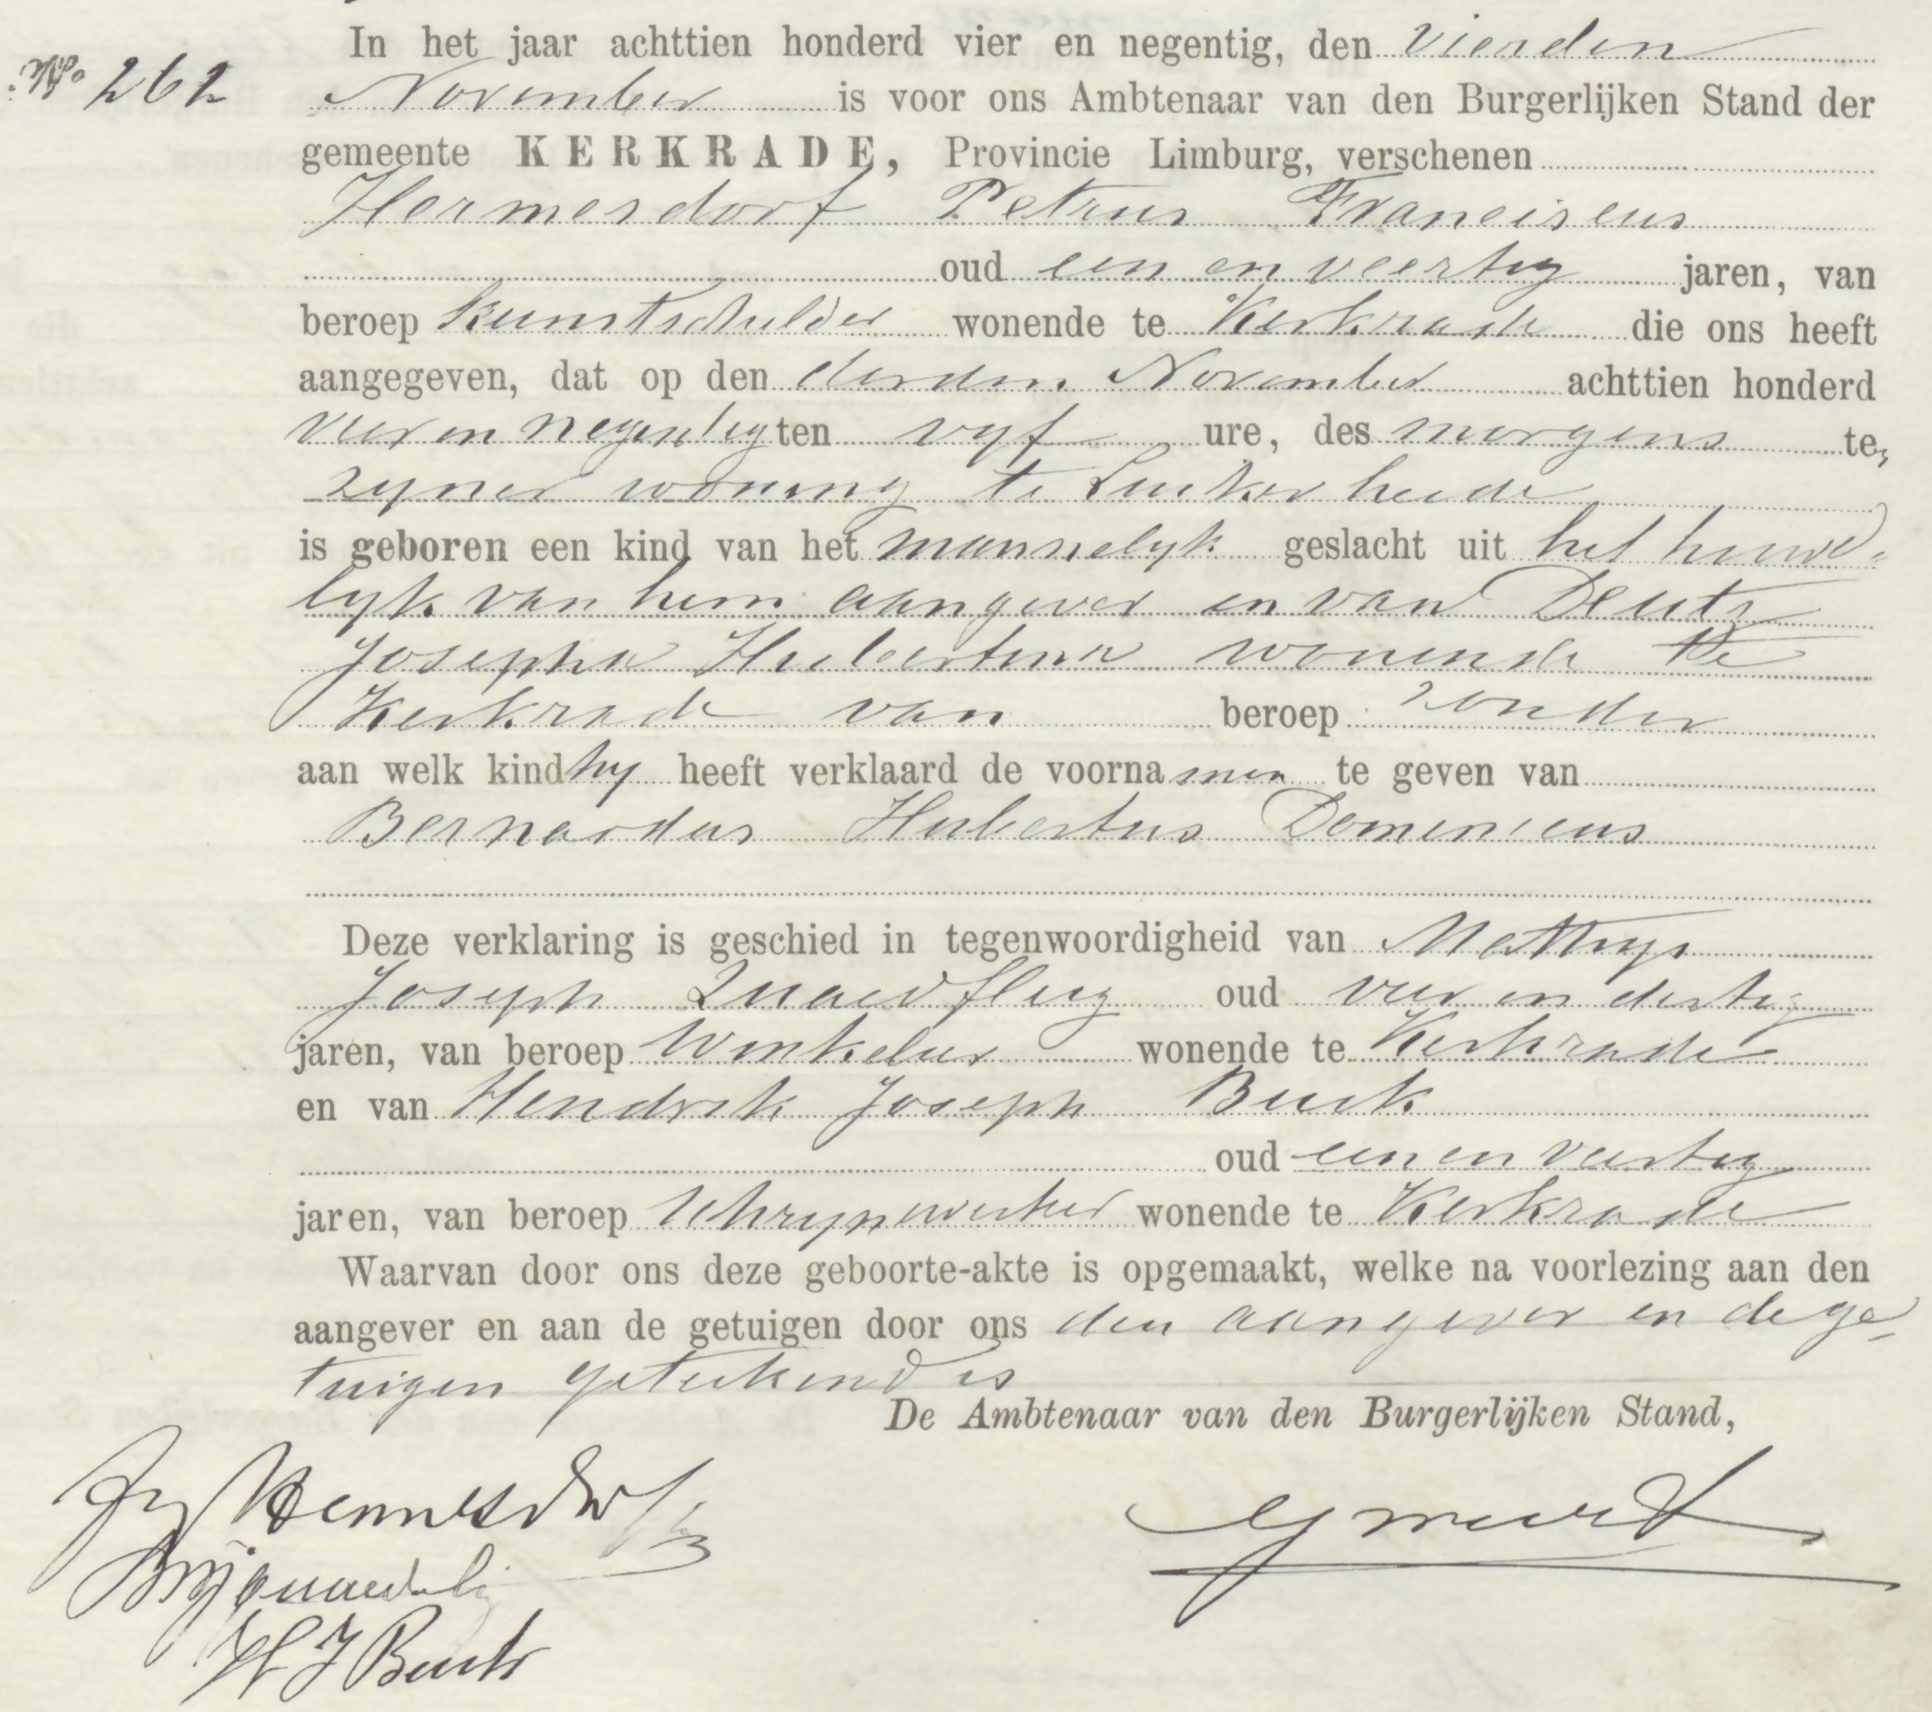 No 262
In het jaar achttien honderd vier en negentig, den vierden
November is voor ons Ambtenaar van den Burgerlijken Stand der
gemeente KERKRADE, Provincie Limburg, verschenen
Hermesdorf Petrus Franciscus
oud een en veertig jaren, van
beroep kunstschilder wonende te Kerkrade die ons heeft
aangegeven, dat op den derden November achttien honderd
vier en negentig ten vyf ure, des morgens te,
zyner woning te Luckerheide
is geboren een kind van het mannelyk geslacht uit het huwe-
lyk van hem aangever en van Deutz
Josepha Hubertina wonende te
Kerkrade van beroep zonder
aan welk kind hy heeft verklaard de voornamen te geven van
Bernardus Hubertus Domenicus
Deze verklaring is geschied in tegenwoordigheid van Matthys
Joseph Quaedflieg oud vier en dertig
jaren, van beroep Winkelier wonende te Kerkrade
en van Hendrik Joseph Buck
oud een en veertig
jaren, van beroep Schrynwerker wonende te Kerkrade
Waarvan door ons deze geboorte-akte is opgemaakt, welke na voorlezing aan den
aangever en aan de getuigen door ons den aangever en de ge-
tuigen geteekend is
De Ambtenaar van den Burgerlijken Stand,
Hermesdorf
H J Buck